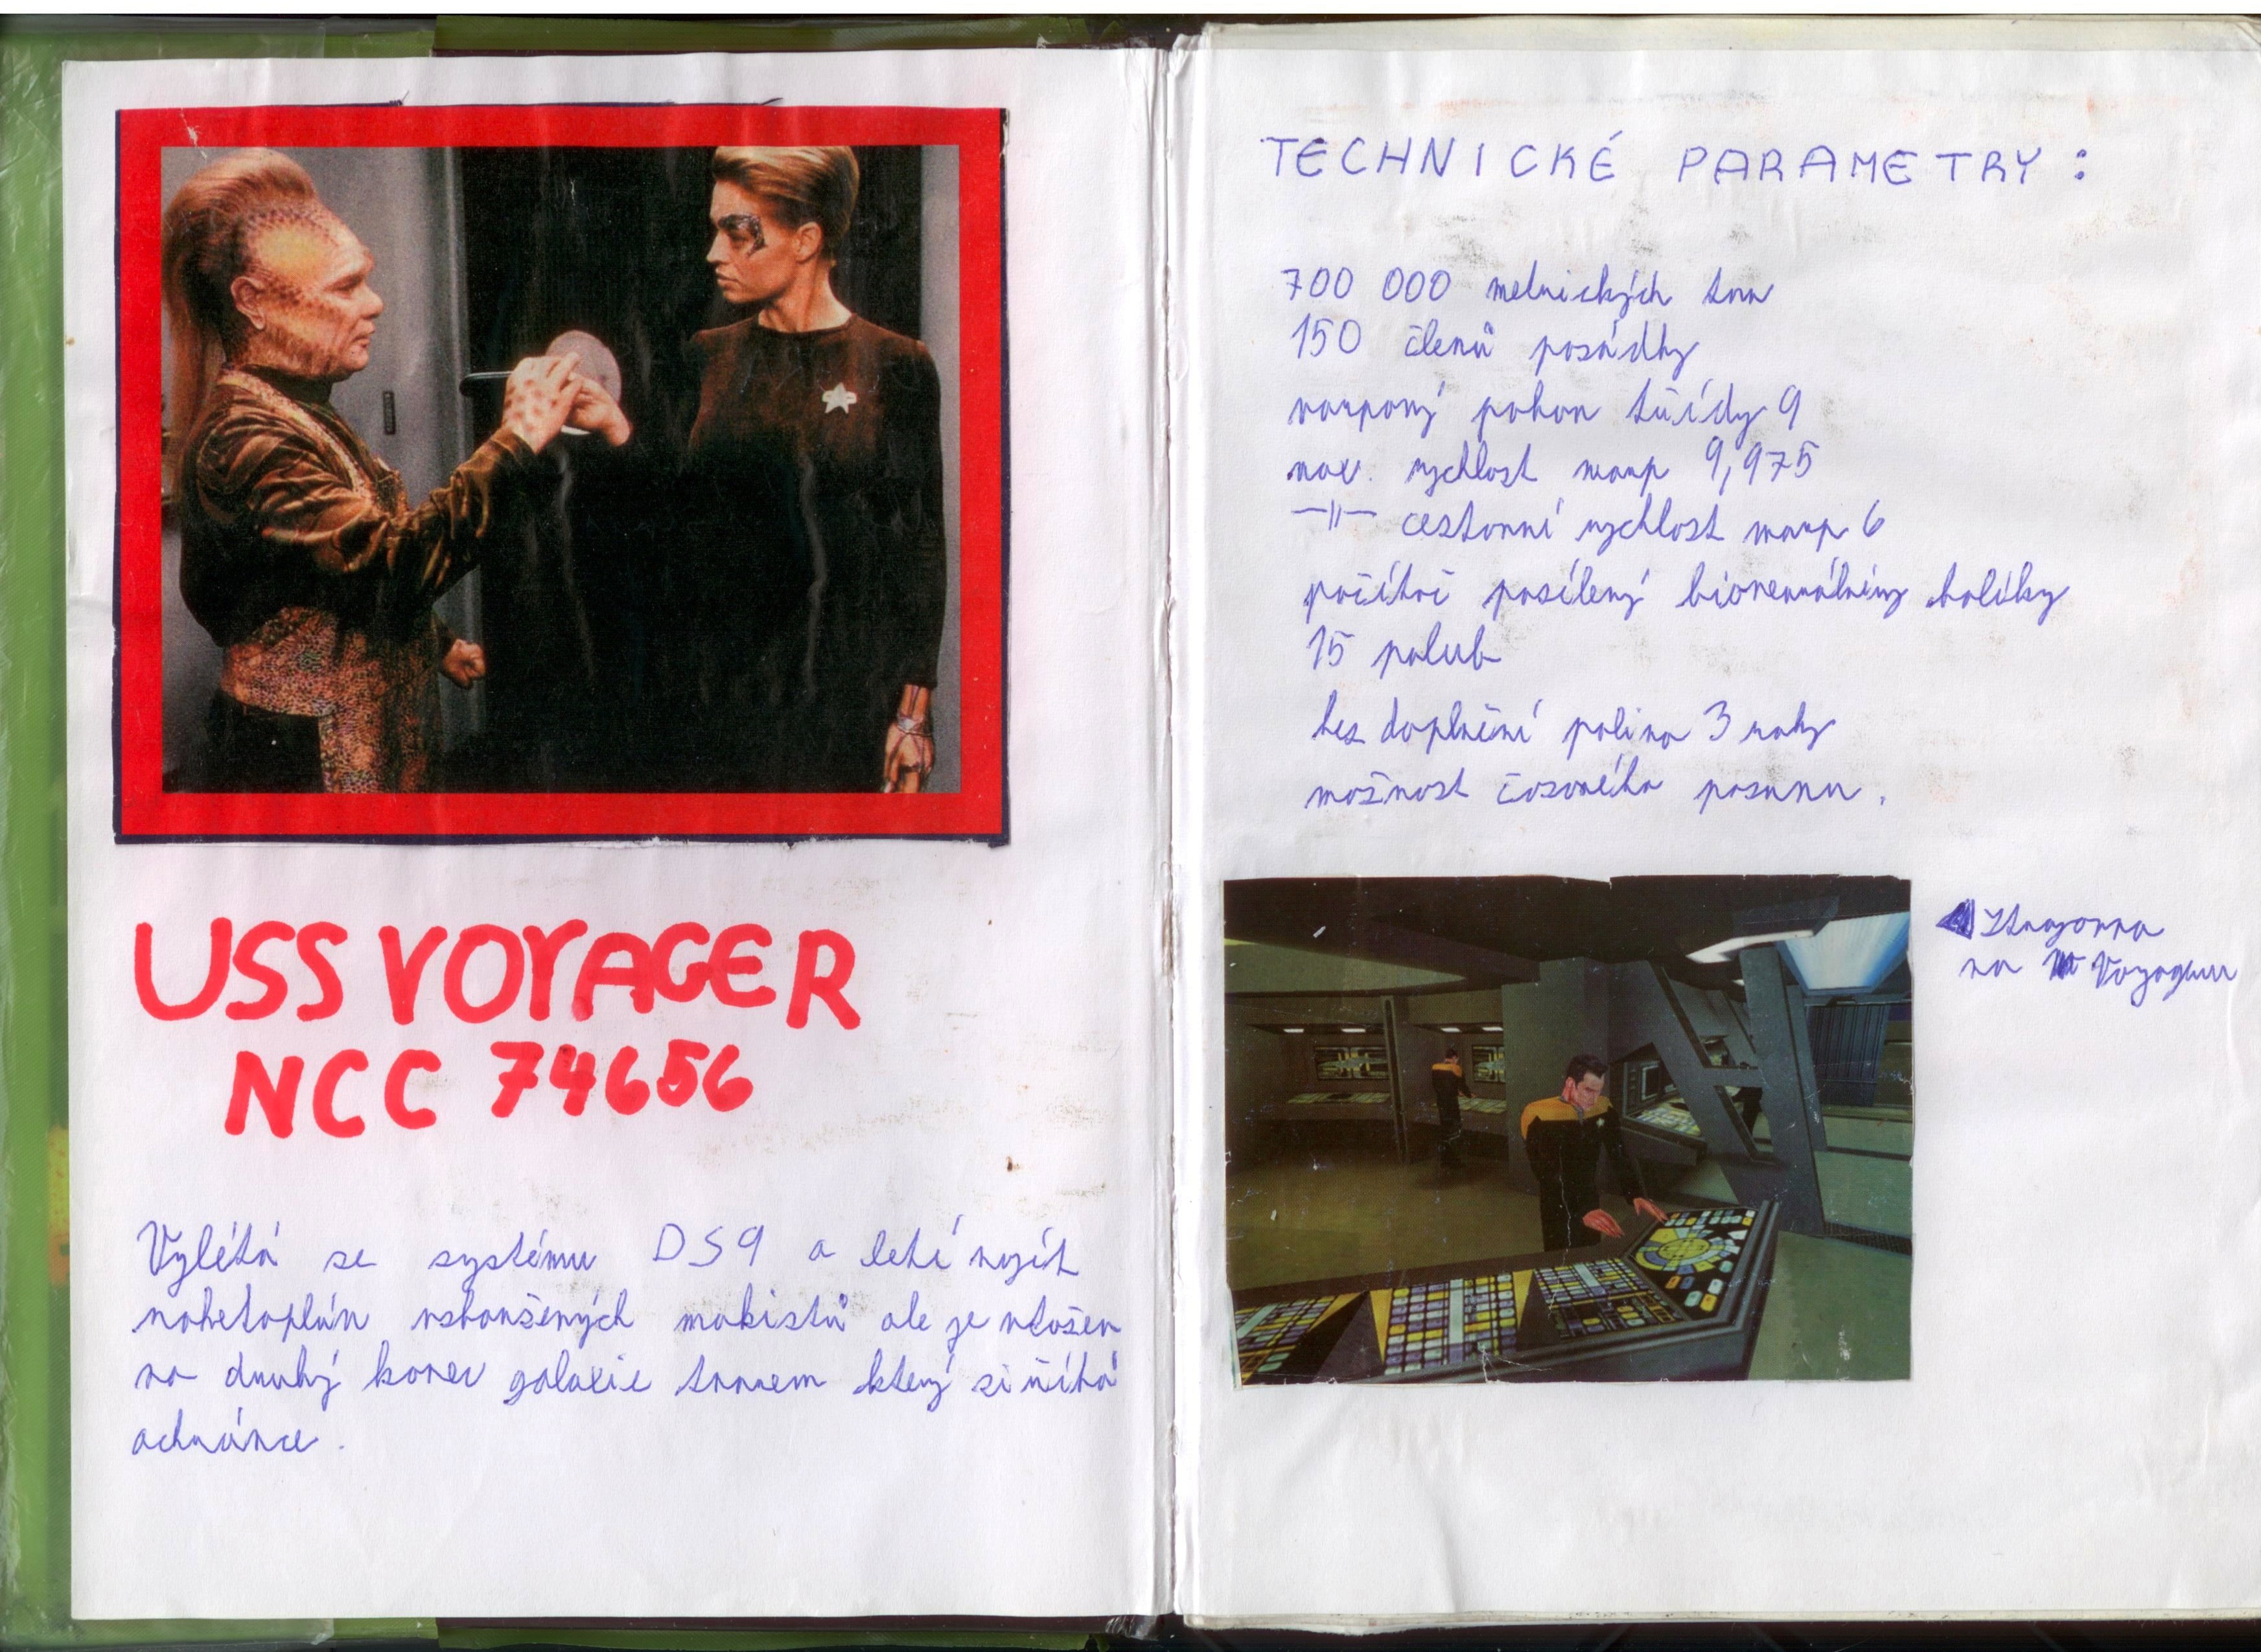 USS VOYAGER
NCC 74656
Vylétá se systému DS9 a letí najít
raketoplán uskoušených makistů ale je vtažen
na druhý konec galaxie tvorem který si říká
ochránce.
TECHNICKÉ PARAMETRY :
700 000 metrických tun
150 členů posádky
warpový pohon třídy 9
max. rychlost warp 9,975
—||— cestovní rychlost warp 6
počítač posílený bioneurálními balíky
15 palub
bez doplnění paliva 3 roky
možnost časového posunu.
Strojovna
na Voyageru